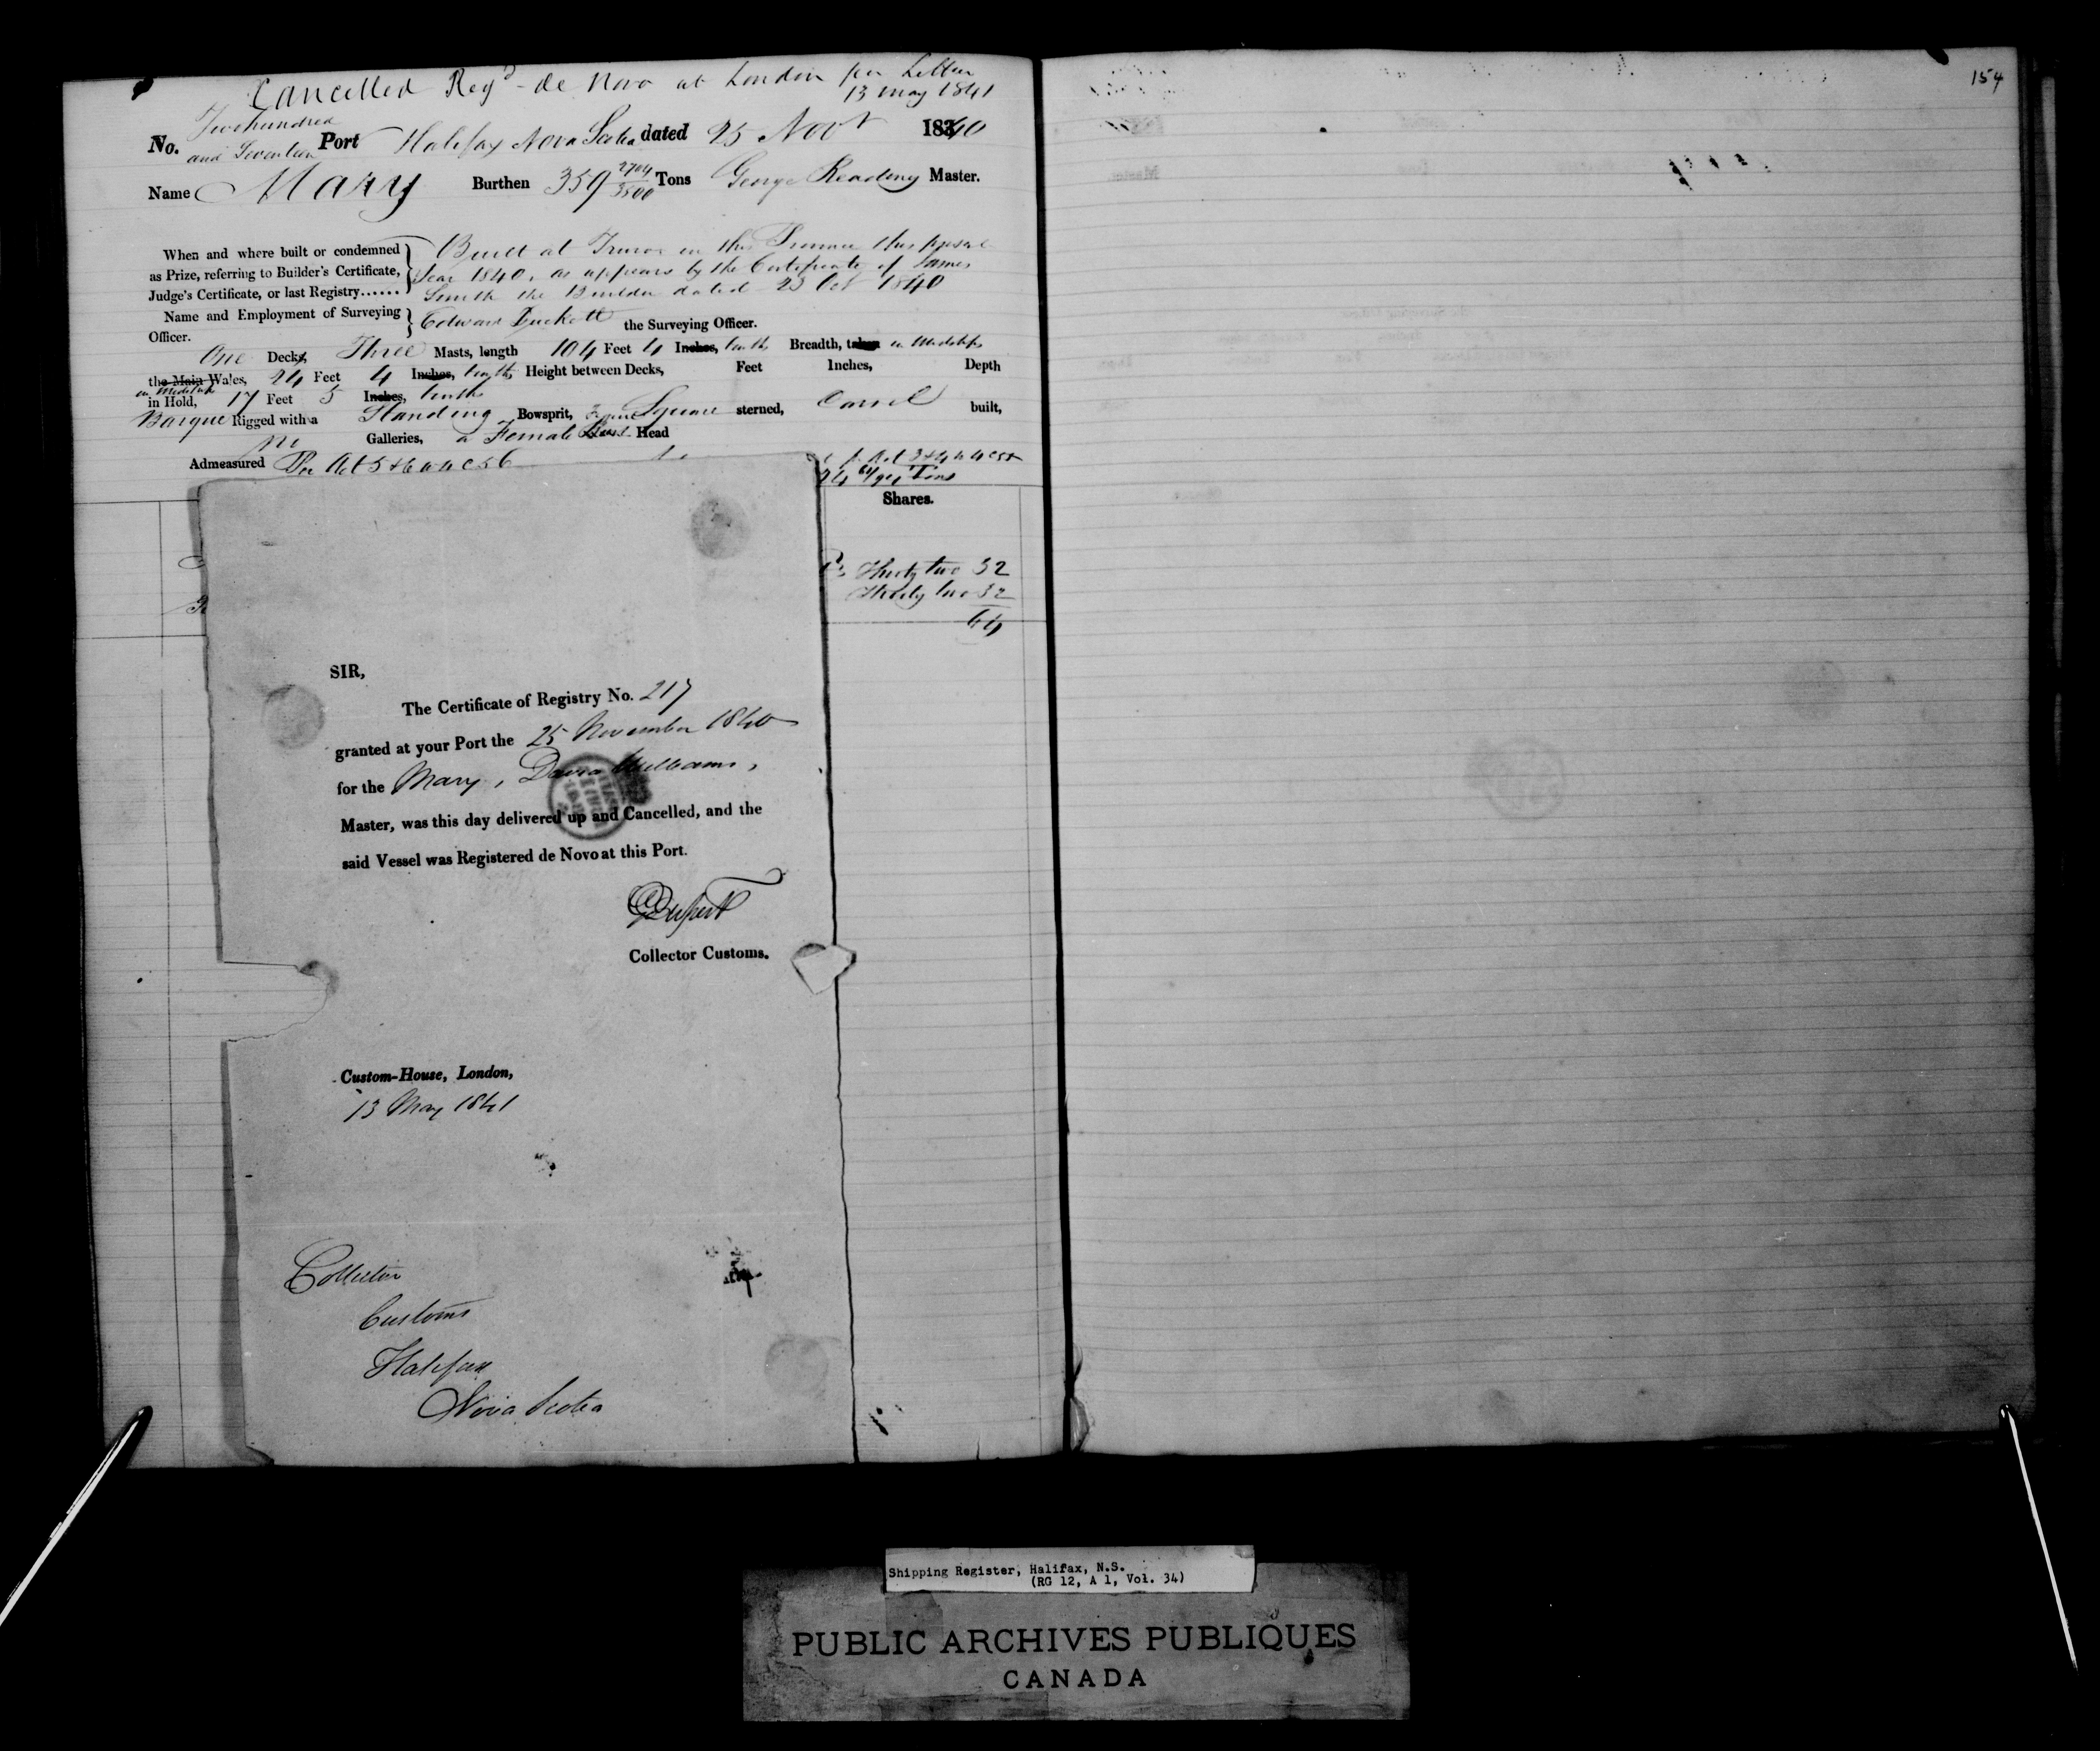 Cancelled Regd - de Novo at London per Letter
13 May 1841
154
No. Two hundred and Seventeen Port Halifax Nova Scotia dated 25 Novr 1840
Name Mary Burthen 359 2704/3500 Tons George Reading Master.
When and where built or condemned as Prize, referring to Builder's Certificate, Judge's Certificate, or last Registry......
Built at Truro in this Province this present
Year 1840, as appears by the Certificate of James
Smith the Builder dated 23 Oct 1840
Name and Employment of Surveying Officer. Edward Duckett the Surveying Officer.
One Deck, Three Masts, length 104 Feet 4 Inches, tenths Breadth, taken in Midships
the Main Wales, 24 Feet 4 Inches, tenths Height between Decks, Feet Inches, Depth
in Midships
in Hold, 17 Feet 5 Inches, tenths
Barque Rigged with a Standing Bowsprit, Square sterned, Carvel built,
no Galleries, a Female Bust Head
Admeasured Per Act 5 & 6
Tons
Shares.
Thirty two 32
Thirty two 32
64
SIR,
The Certificate of Registry No. 217
granted at your Port the 25 November 1840
for the Mary, David Williams,
Master, was this day delivered up and Cancelled, and the
said Vessel was Registered de Novo at this Port.
Collector Customs.
Custom-House, London,
13 May 1841
Collector
Customs
Halifax
Nova Scotia
Shipping Register, Halifax, N.S.
(RG 12, A 1, Vol. 34)
PUBLIC ARCHIVES PUBLIQUES
CANADA